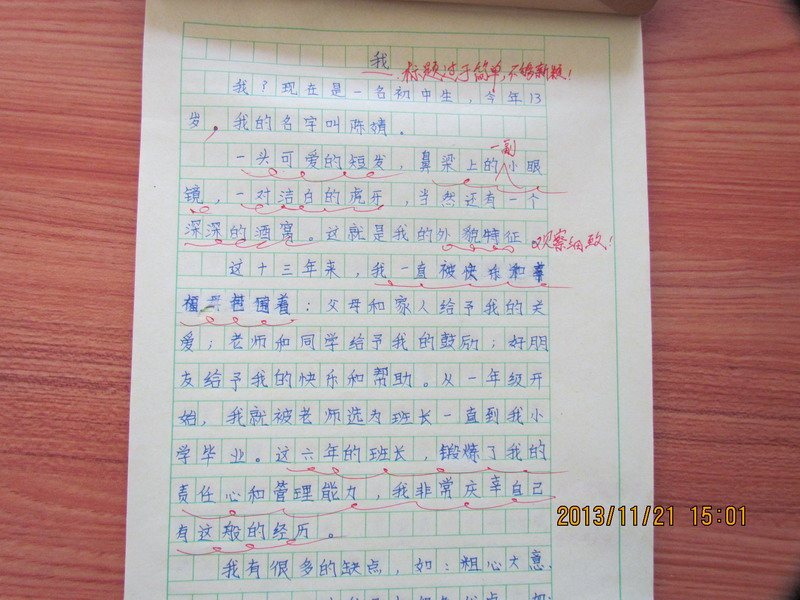 我
标题过于简单,不够新颖!
我?现在是一名初中生,今年13
岁,我的名字叫陈婧。
一副
一头可爱的短发,鼻梁上的小眼
镜,一对洁白的虎牙,当然还有一个
深深的酒窝。这就是我的外貌特征
观察细致!
这十三年来,我一直被快乐和幸
福包围着:父母和家人给予我的关
爱;老师和同学给予我的鼓励;好朋
友给予我的快乐和帮助。从一年级开
始,我就被老师选为班长一直到我小
学毕业。这六年的班长,锻炼了我的
责任心和管理能力,我非常庆幸自己
有这般的经历。
我有很多的缺点,如:粗心大意
2013/11/21 15:01